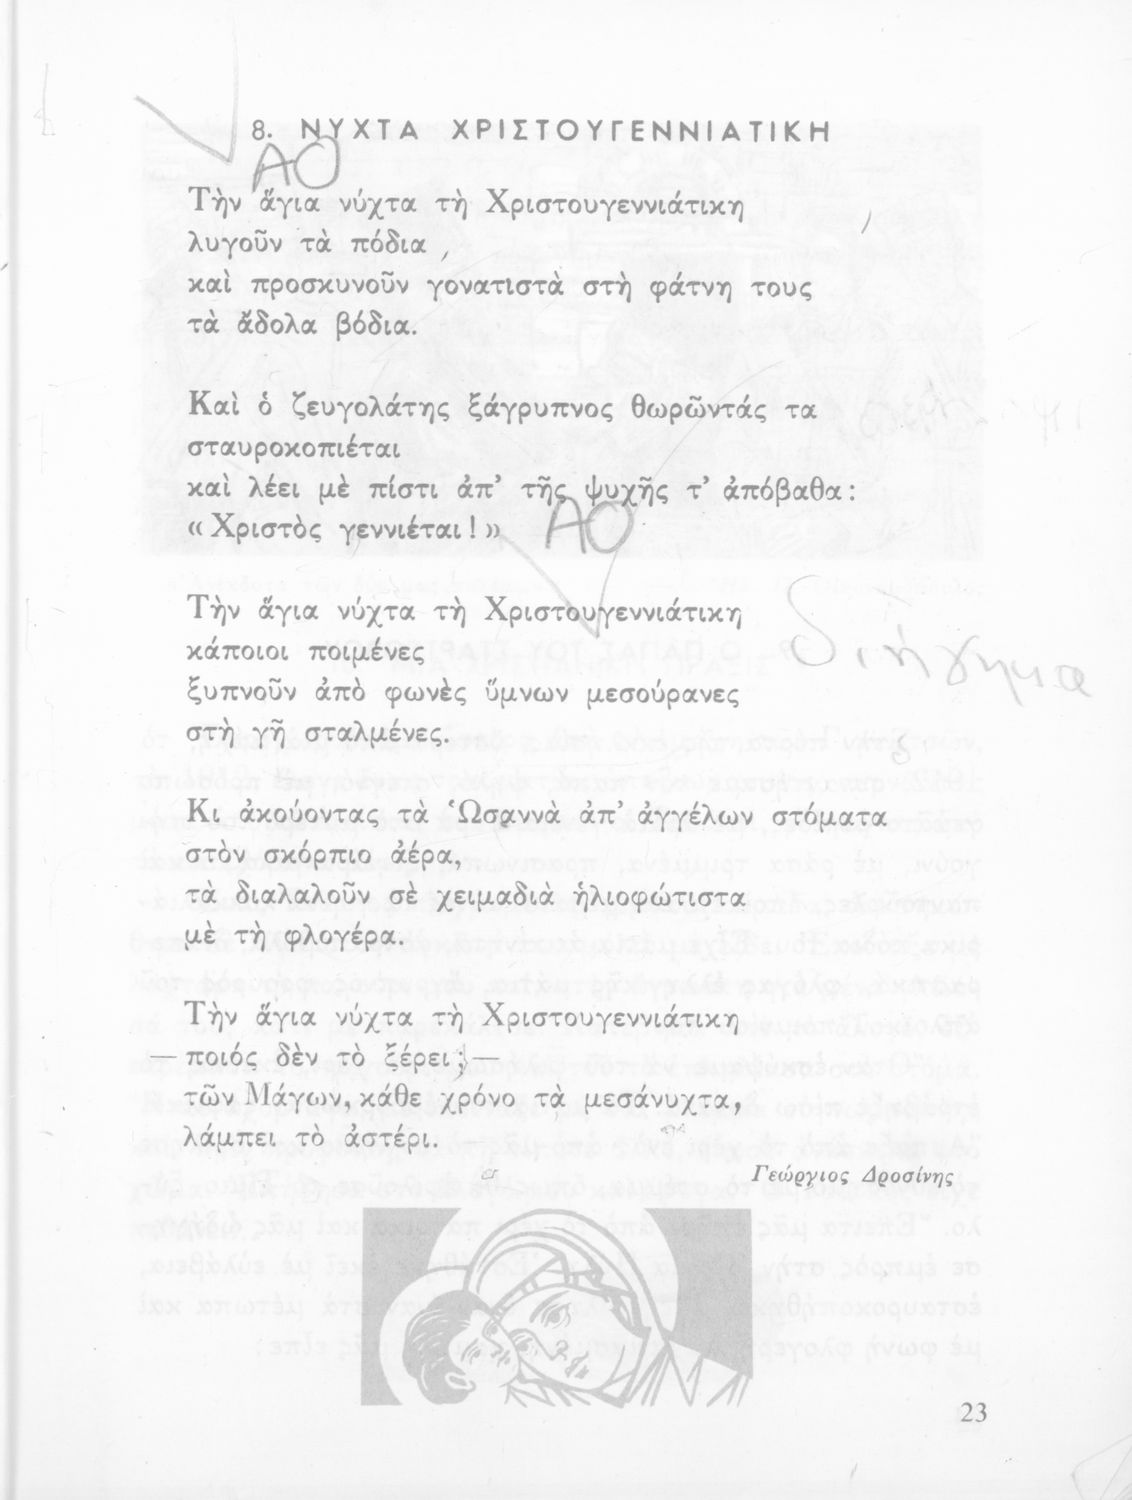 8. ΝΥΧΤΑ ΧΡΙΣΤΟΥΓΕΝΝΙΑΤΙΚΗ
ΑΟ
Τὴν ἅγια νύχτα τὴ Χριστουγεννιάτικη
λυγοῦν τὰ πόδια
καὶ προσκυνοῦν γονατιστὰ στὴ φάτνη τους
τὰ ἄδολα βόδια.
Καὶ ὁ ζευγολάτης ξάγρυπνος θωρῶντάς τα
σταυροκοπιέται
καὶ λέει μὲ πίστι ἀπ’ τῆς ψυχῆς τ’ ἀπόβαθα:
«Χριστὸς γεννιέται!»
ΑΟ
Τὴν ἅγια νύχτα τὴ Χριστουγεννιάτικη
κάποιοι ποιμένες
διήγημα
ξυπνοῦν ἀπὸ φωνὲς ὕμνων μεσούρανες
στὴ γῆ σταλμένες.
Κι ἀκούοντας τὰ Ὡσαννὰ ἀπ’ ἀγγέλων στόματα
στὸν σκόρπιο ἀέρα,
τὰ διαλαλοῦν σὲ χειμαδιὰ ἡλιοφώτιστα
μὲ τὴ φλογέρα.
Τὴν ἅγια νύχτα τὴ Χριστουγεννιάτικη
— ποιός δὲν τὸ ξέρει; —
τῶν Μάγων, κάθε χρόνο τὰ μεσάνυχτα,
λάμπει τὸ ἀστέρι.
Γεώργιος Δροσίνης
23